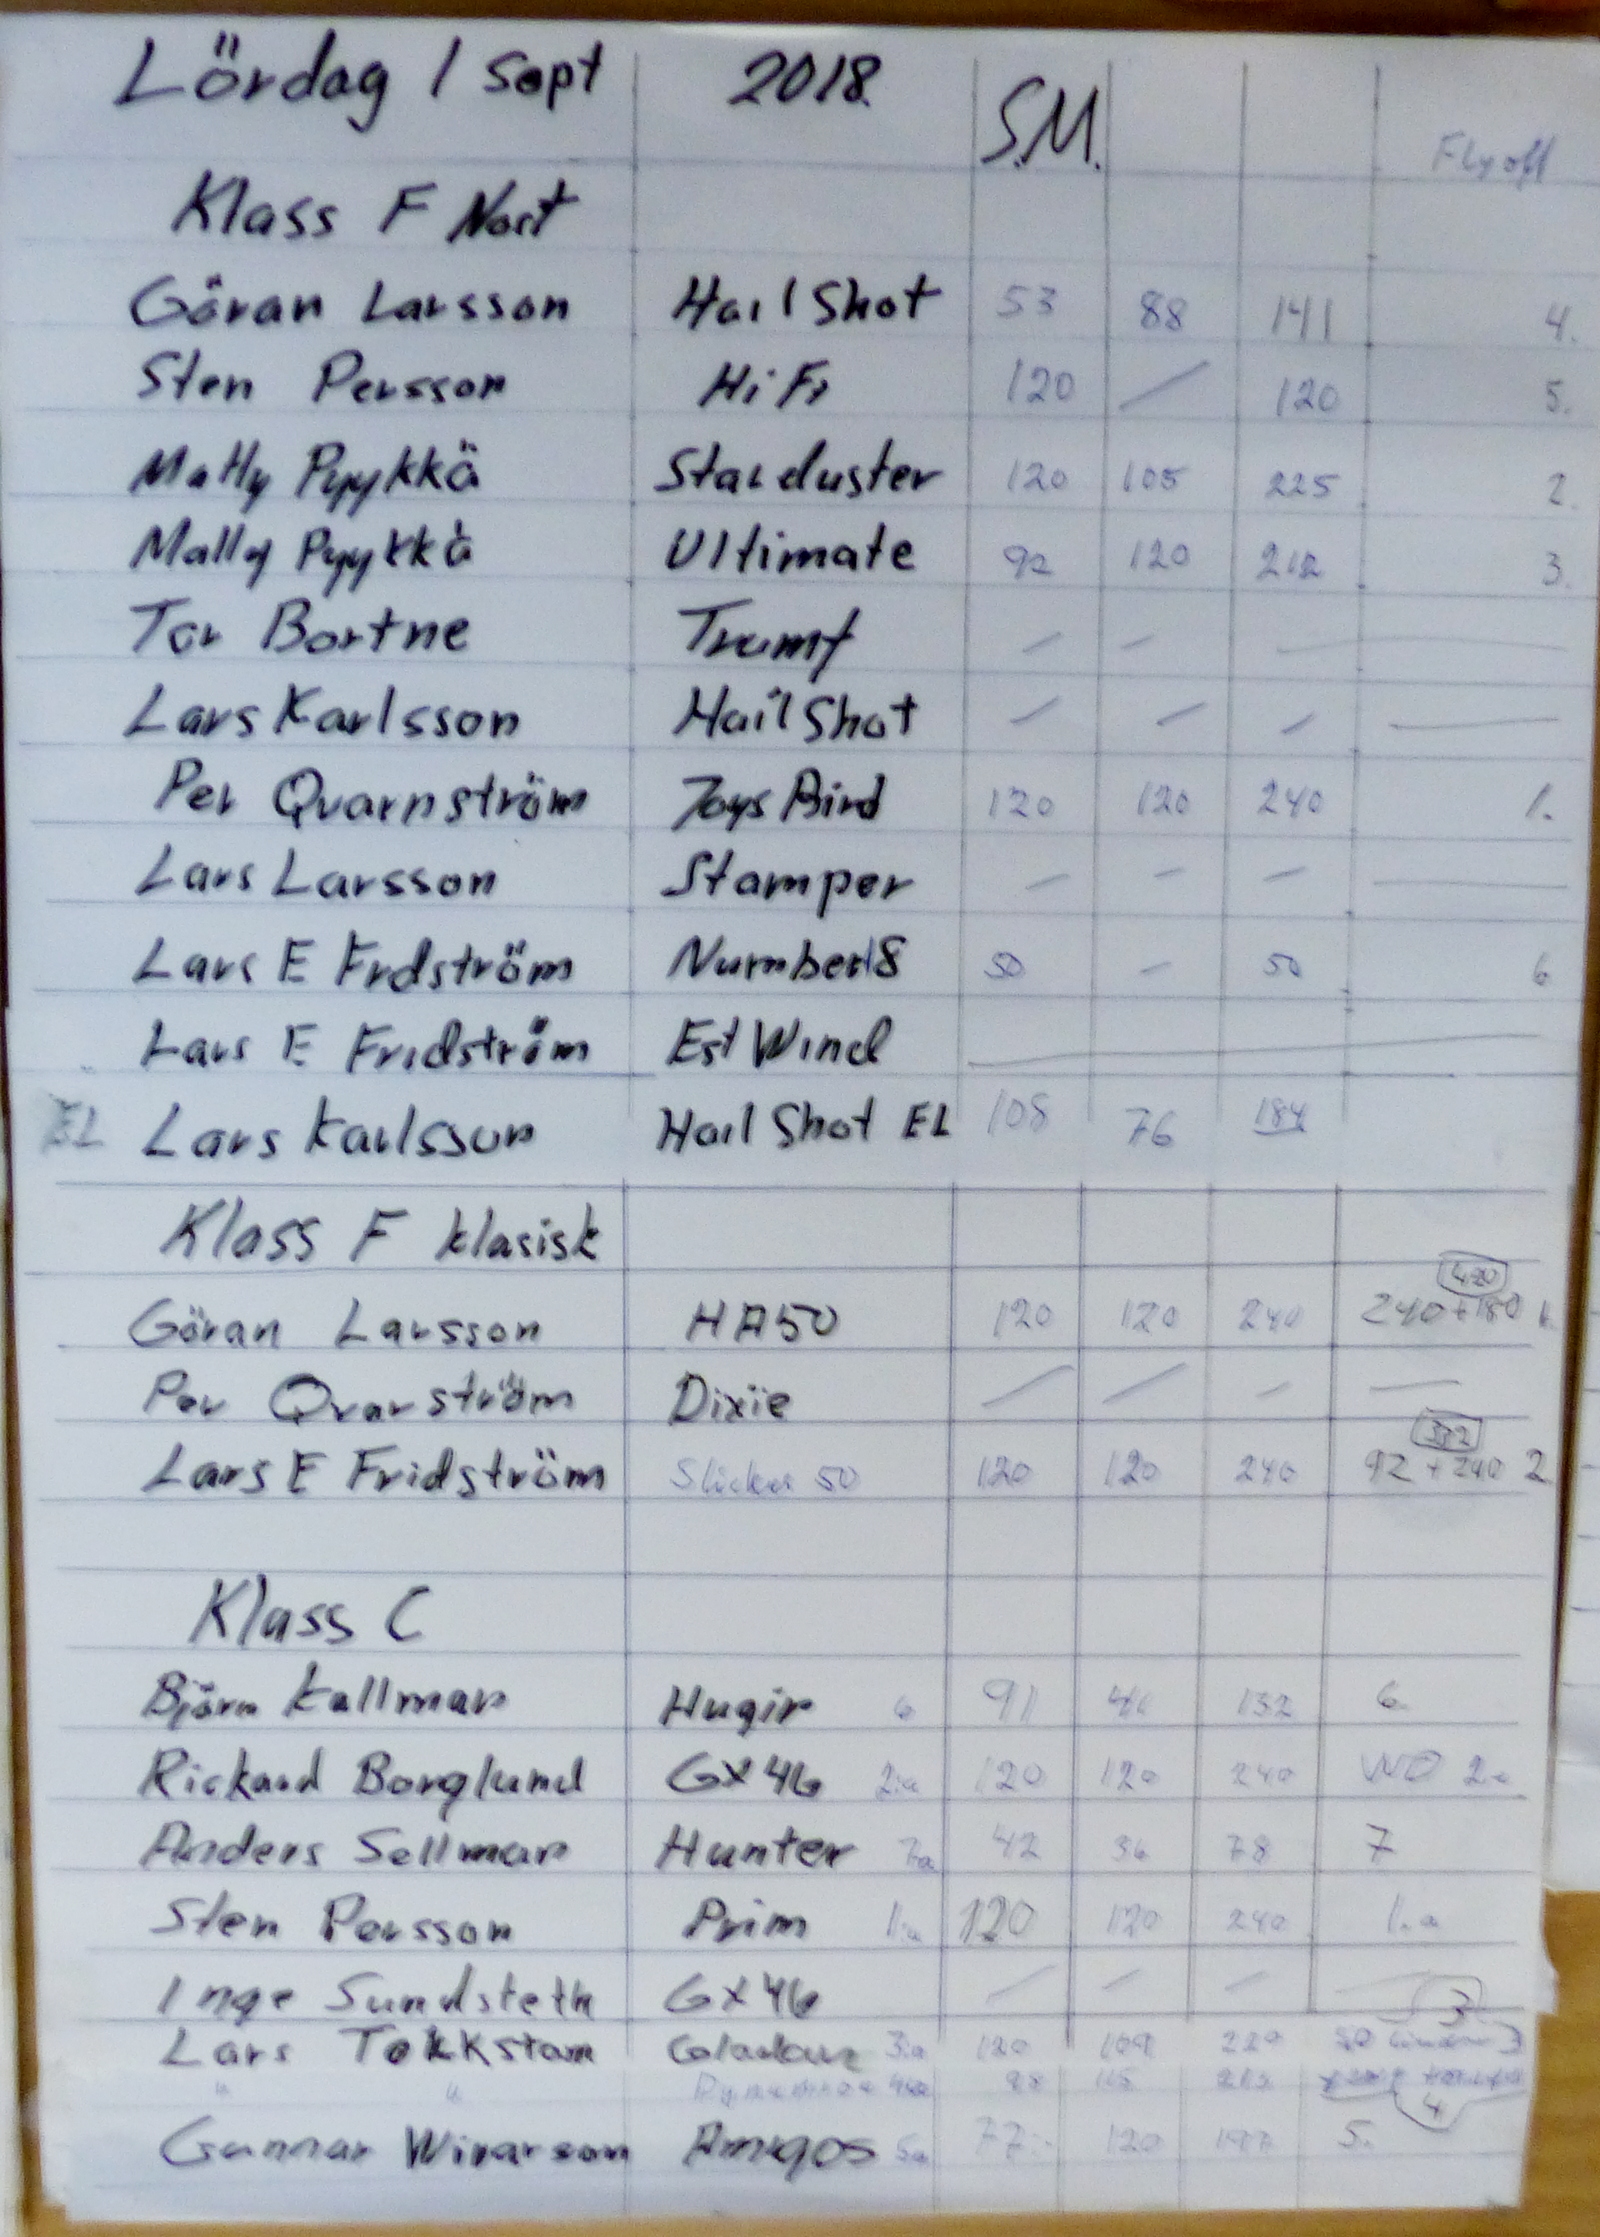 Lördag 1 Sept 2018. S.M.
Fly off
Klass F Nost
Göran Larsson Hail Shot 53 88 141 4.
Sten Persson HiFi 120 / 120 5.
Matty Pyykkä Starduster 120 105 225 2.
Matty Pyykkä Ultimate 92 120 212 3.
Tor Bortne Trumf — — —
Lars Karlsson Hail Shot — — — —
Per Qvarnström Toys Bird 120 120 240 1.
Lars Larsson Stamper — — — —
Lars E Frdström Number 18 50 — 50 6
Lars E Fridström Est Wind —
EL Lars Karlsson Hail Shot EL 108 76 184
Klass F klasisk
420
Göran Larsson HA50 120 120 240 240+180 1.
Per Qvarström Dixie — — — —
332
Lars E Fridström 50 120 120 240 92 + 240 2
Klass C
Björn Kallman Hugin 6 91 41 132 6
Rickard Borglund GX46 2:a 120 120 240 WO 2:a
Anders Sellman Hunter 7:a 42 36 78 7
Sten Persson Prim 1:a 120 120 240 1:a
Inge Sundsteth GX46 — — — —
3
Lars Tokkstam 3:a 120 109 229 3
" " 4
Gunnar Winarsson Amigos 5:a 77 120 197 5.